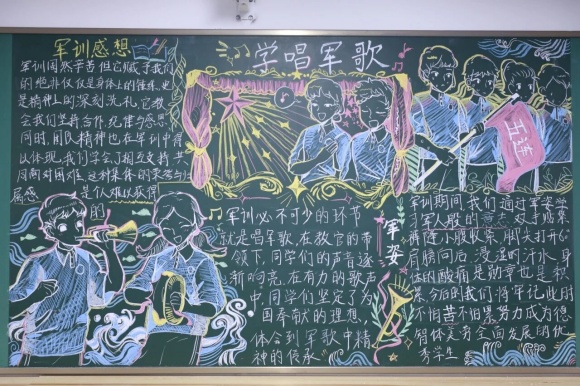 军训感想
军训固然辛苦但它赋予我们
的绝非仅仅是身体上的操练,也
是精神上的深刻洗礼,它教
会我们坚持合作,纪律与感恩
同时,团队精神也在军训中得
以体现,我们学会了相互支持共
同面对困难,这种集体的荣誉与归
属感 是仍难以获得
的
学唱军歌
五连
军训必不可少的环节
就是唱军歌,在教官的带
领下,同学们的声音逐
渐响亮,在有力的歌声
中,同学们坚定了为
国奉献的理想,
体会到军歌中精
神的传承
军姿
军训期间我们通过军姿学
习军人般的意志双手贴紧
裤缝小腹收紧,脚尖打开60°
肩膀向后,浸湿的汗水,身
体的酸痛是勋章也是积
累,今后我们将牢记此时
不怕苦不怕累努力成为德
智体美劳全面发展的优
秀学生